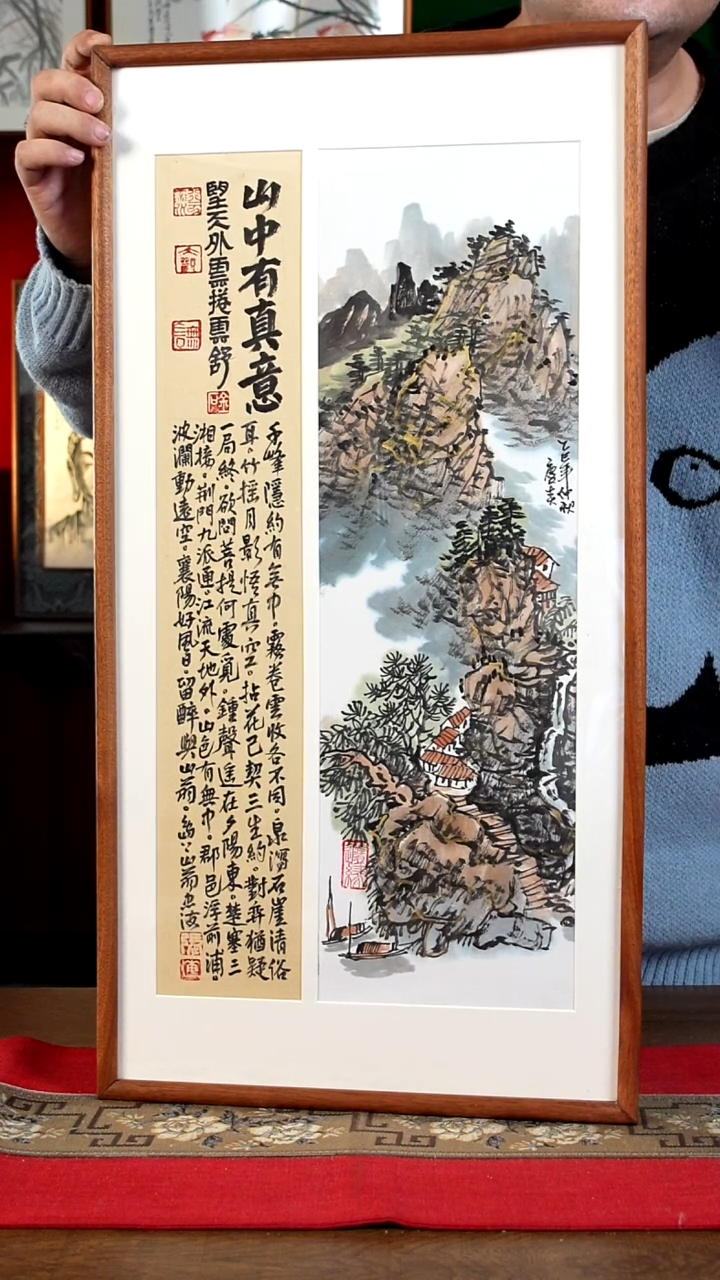 山中有真意
望天外雲捲雲舒
千峰隱約有無中。霧卷雲收各不同。泉瀉石崖清俗
耳。竹搖月影悟真空。拈花已契三生約。對弈猶疑
一局終。欲問菩提何處覓。鐘聲遙在夕陽東。楚塞三
湘接。荊門九派通。江流天地外。山色有無中。郡邑浮前浦。
波瀾動遠空。襄陽好風日。留醉與山翁。
乙巳年仲秋